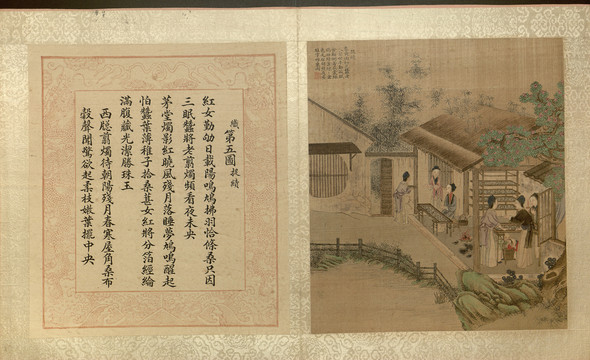 織 第五圖 捉績
紅女勤劬日載陽鳴鳩拂羽恰條桑只因
三眠蠶將老翦燭頻看夜未央
茅堂燭影紅曉風殘月落睡夢鳩鳴醒起
怕蠶葉薄稚子拾桑葚女紅將分箔經綸
滿腹藏光潔勝珠玉
西牕翦燭待朝陽殘月春寒屋角桑布
穀聲聞驚欲起柔枝嫩葉擺中央